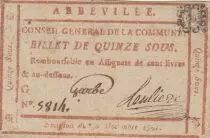 ABBEVILLE.
CONSEIL GENERAL DE LA COMMUNE
BILLET DE QUINZE SOUS.
Remboursable en Assignats de cent livres
& au-dessous.
No. 5814.
Quinze Sous.
Quinze Sous.